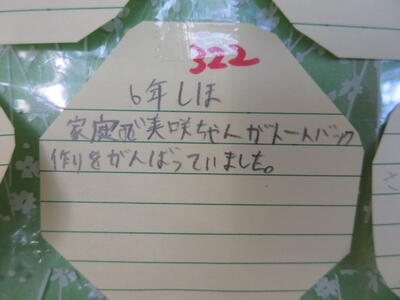 322
6年しほ
家庭で美咲ちゃんがトートバック
作りをがんばっていました。